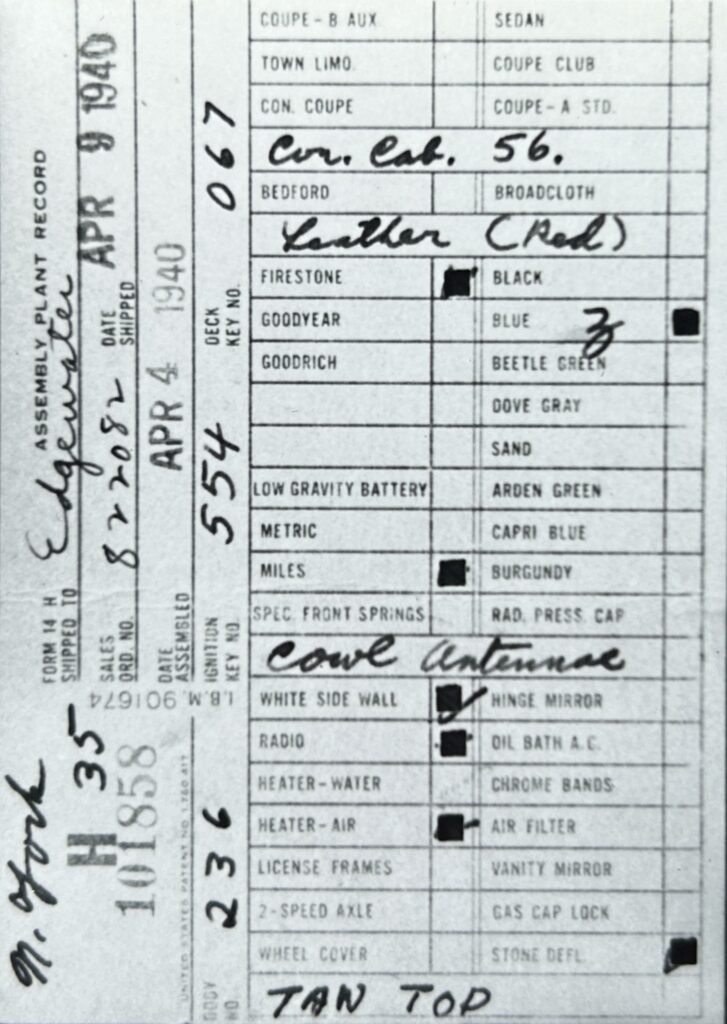 ASSEMBLY PLANT RECORD
FORM 14 H
SHIPPED TO Edgewater
SALES ORD. NO. 822082 DATE SHIPPED APR 9 1940
DATE ASSEMBLED APR 4 1940
IGNITION KEY NO. 554 DECK KEY NO. 067
I.B.M. 901674
N. York
H 35
101858
UNITED STATES PATENT NO. 1,780,417
BODY NO. 236
COUPE-B AUX. SEDAN
TOWN LIMO. COUPE CLUB
CON. COUPE COUPE-A STD.
Con. Cab. 56.
BEDFORD BROADCLOTH
Leather (Red)
FIRESTONE BLACK
GOODYEAR BLUE 3
GOODRICH BEETLE GREEN
DOVE GRAY
SAND
LOW GRAVITY BATTERY ARDEN GREEN
METRIC CAPRI BLUE
MILES BURGUNDY
SPEC. FRONT SPRINGS RAD. PRESS. CAP
Cowl Antennae
WHITE SIDE WALL HINGE MIRROR
RADIO OIL BATH A.C.
HEATER-WATER CHROME BANDS
HEATER-AIR AIR FILTER
LICENSE FRAMES VANITY MIRROR
2-SPEED AXLE GAS CAP LOCK
WHEEL COVER STONE DEFL.
TAN TOP